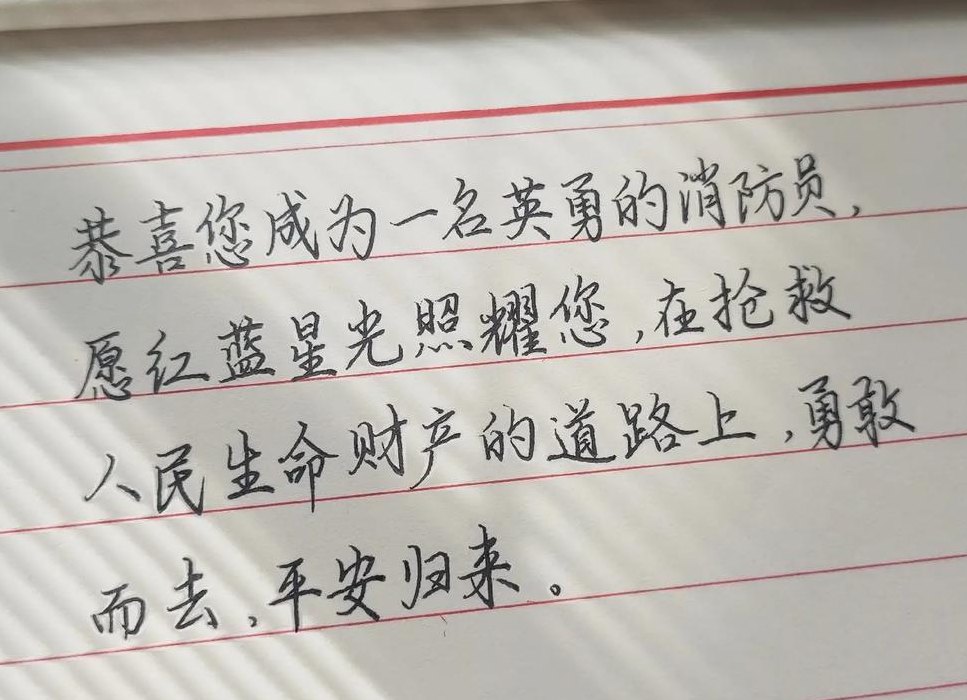 恭喜您成为一名英勇的消防员,
愿红蓝星光照耀您,在抢救
人民生命财产的道路上,勇敢
而去,平安归来。